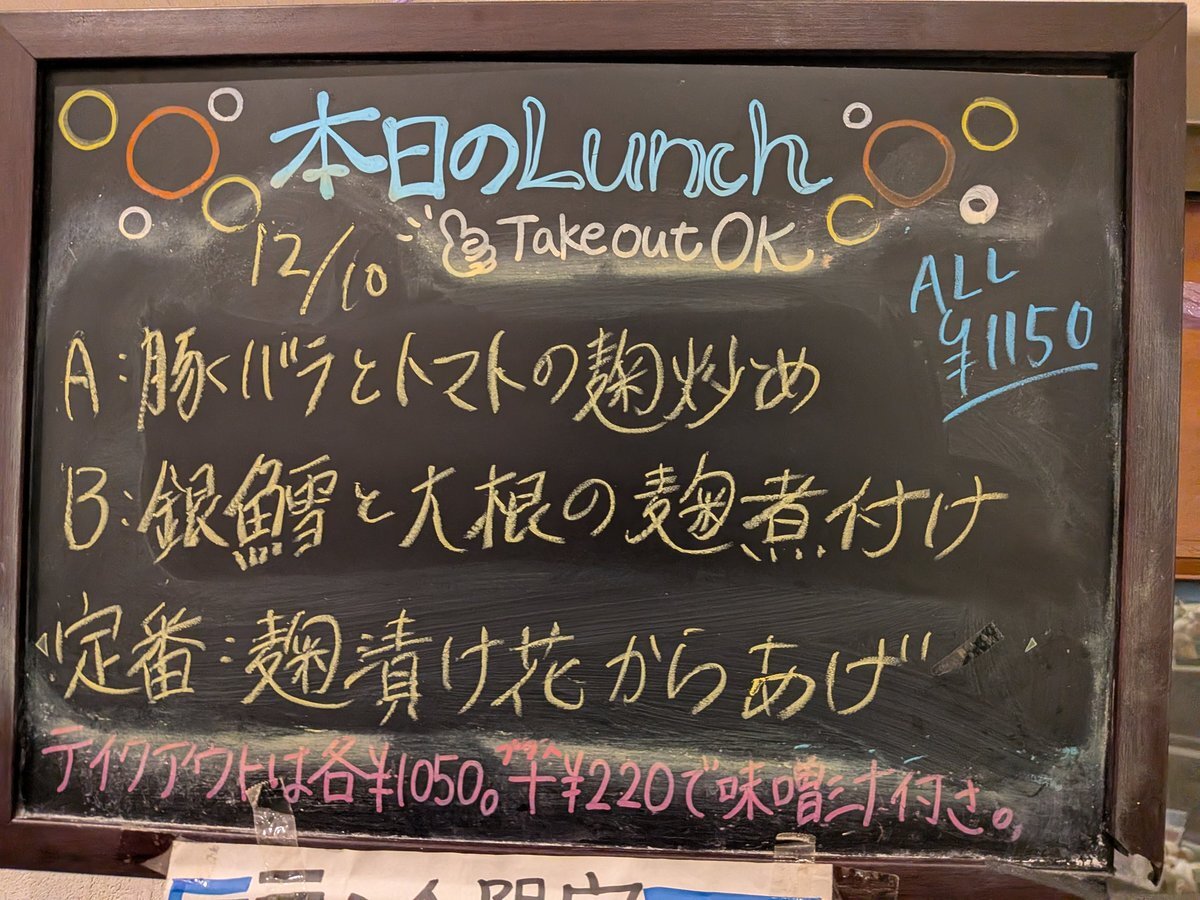 本日のLunch
Takeout OK
12/10
ALL
¥1150
A:豚バラとトマトの麹炒め
B:銀鱈と大根の麹煮付け
定番:麹漬け花からあげ
テイクアウトは各¥1050。プラス+¥220で味噌汁付き。